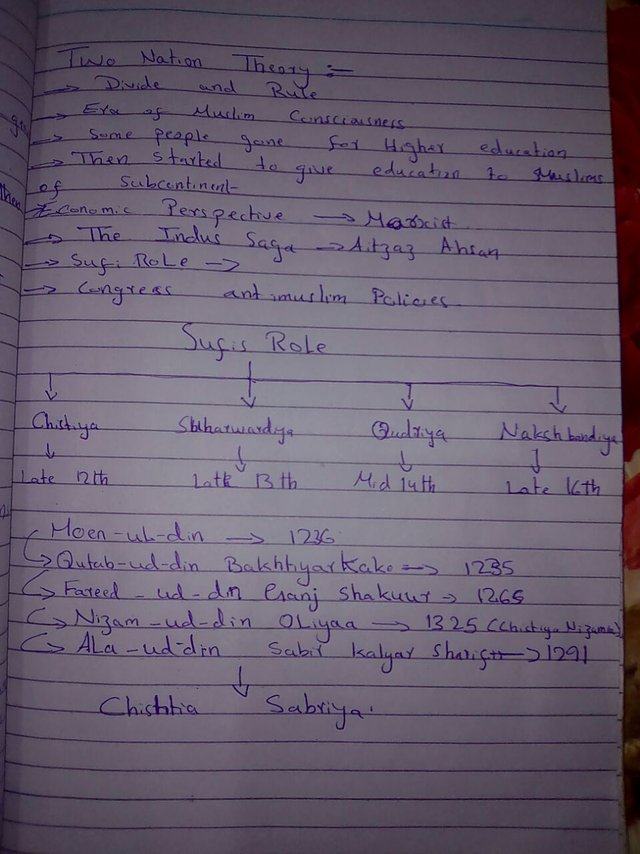 Two Nation Theory :-
→ Divide and Rule
→ Era of Muslim Consciousness
→ Some people gone for Higher education
→ Then started to give education to Muslims
of Subcontinent
Economic Perspective → Marxist
→ The Indus Saga → Aitzaz Ahsan
→ Sufi Role →
→ Congress antimuslim Policies
Sufis Role
Chistiya Suharwardiya Qudriya Nakshbandiya
Late 12th Late 13th Mid 14th Late 16th
Moen-ub-din → 1236
→ Qutab-ud-din Bakhtiyar Kake → 1235
→ Fareed-ud-din Ganj Shakuur → 1265
→ Nizam-ud-din Oliyaa → 1325 (Chistiya Nizamia)
→ Ala-ud-din Sabir Kalyar Sharif → 1291
Chishtia Sabriya